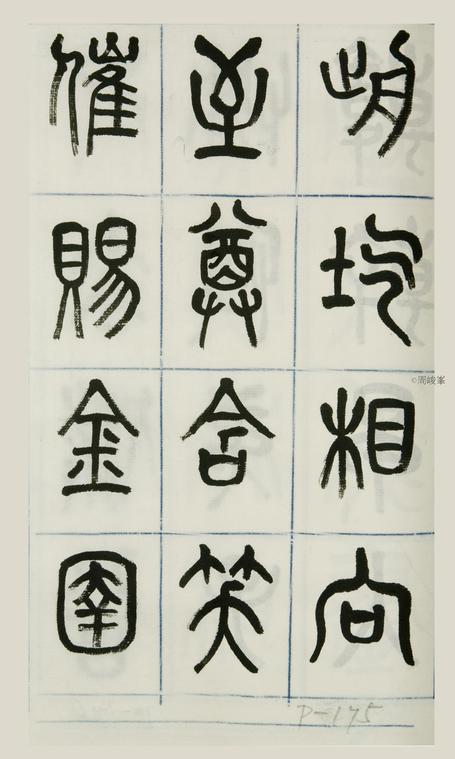 前屹相向
至尊含笑
催賜金圉
©周峻峯
P-175